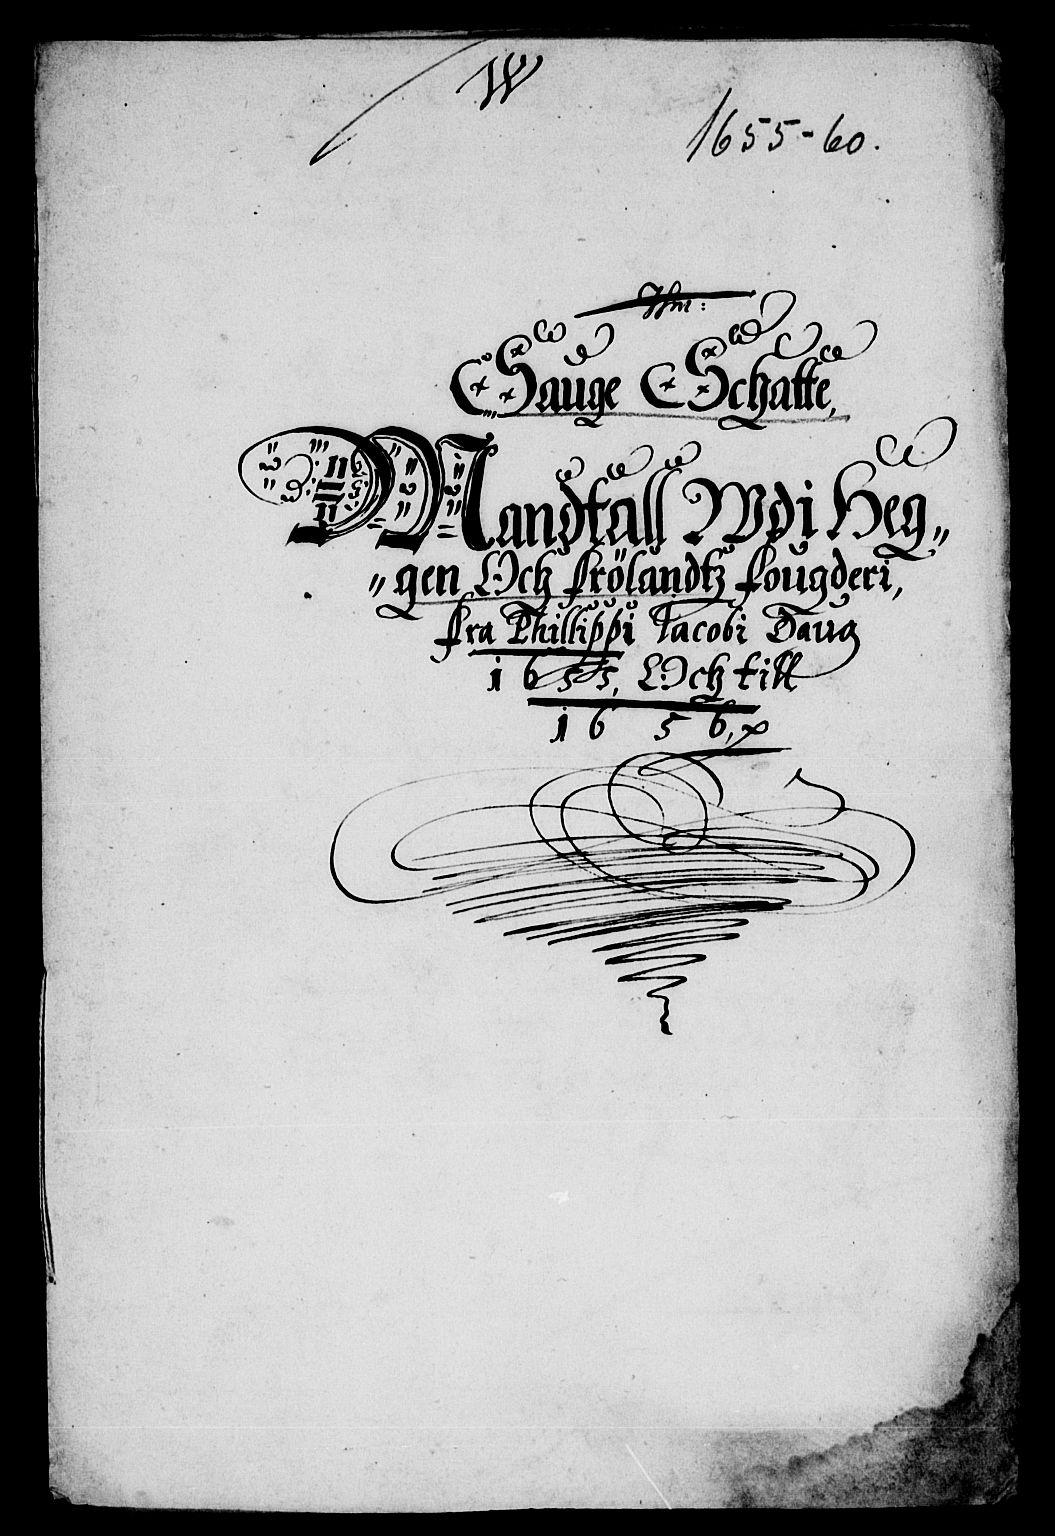 W
1655-60.
Sauge Schatte,
Mandtall Wdi Heg„
„gen Och Frölandtz fougderi,
fra Phillippi Jacobi Daug
1655, Och till
1656,